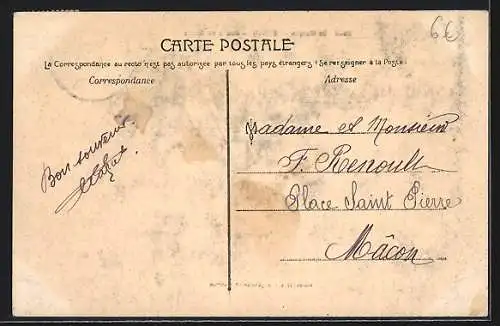 6€
CARTE POSTALE
La Correspondance au recto n'est pas autorisée par tous les pays étrangers (Se renseigner à la Poste)
Correspondance
Adresse
Bon souvenir
Madame et Monsieur
F. Renoult
Place Saint Pierre
Mâcon